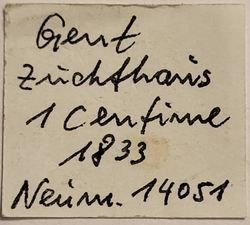 Gent
Zuchthaus
1 Centime
1833
Neum. 14051